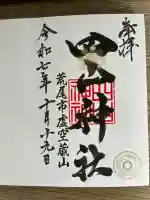 奉拝
四山神社
荒尾市虚空蔵山
令和七年十月十九日